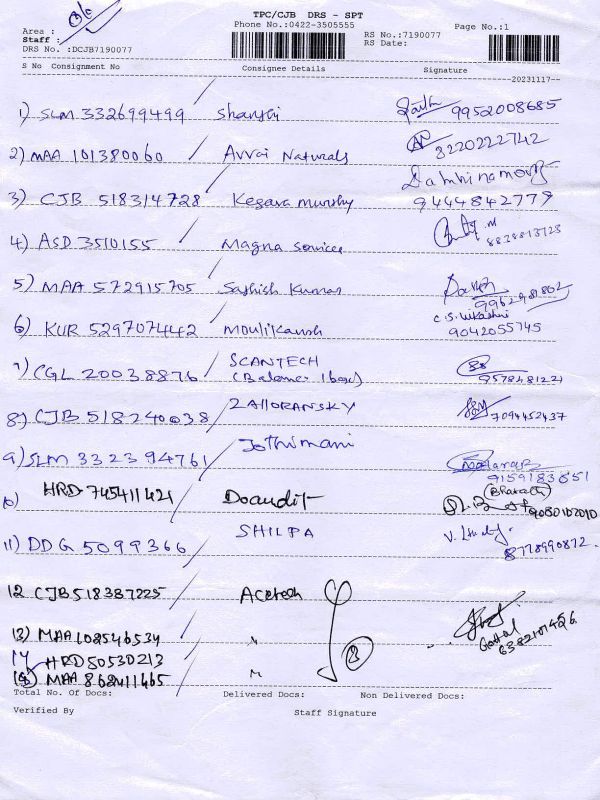 TPC/CJB DRS - SPT
Phone No.:0422-3505555
Page No.:1
Area :
Staff :
DRS No. :DCJB7190077
RS No.:7190077
RS Date:
S No Consignment No Consignee Details Signature
20231117
1) SLM 332699499 Shanthi 9952008685
2) MAA 101380060 Avvai Naturals 8220222742
3) CJB 518314728 Kesava murthy 9444842779
4) ASD 3510155 Magna services 8838813723
5) MAA 572915705 Sathish Kumar 9962981802
6) KUR 5297074442 Moulikansh 9042055745
7) CGL 20038876 SCANTECH 9578481221
(Balance 1 box)
8) CJB 518240038 ZALLORANSKY 7094452437
9) SLM 332394761 Jothimani 9159183651
10) HRD 745411421 Docaudit (Bharath) 9080102010
11) DDG 5099366 SHILPA 8778990872
12 CJB518387225 Acetech
13) MAA 102546534 " 6382101426
14 HRD50530213
15) MAA 868411465 "
8
Total No. Of Docs: Delivered Docs: Non Delivered Docs:
Verified By Staff Signature